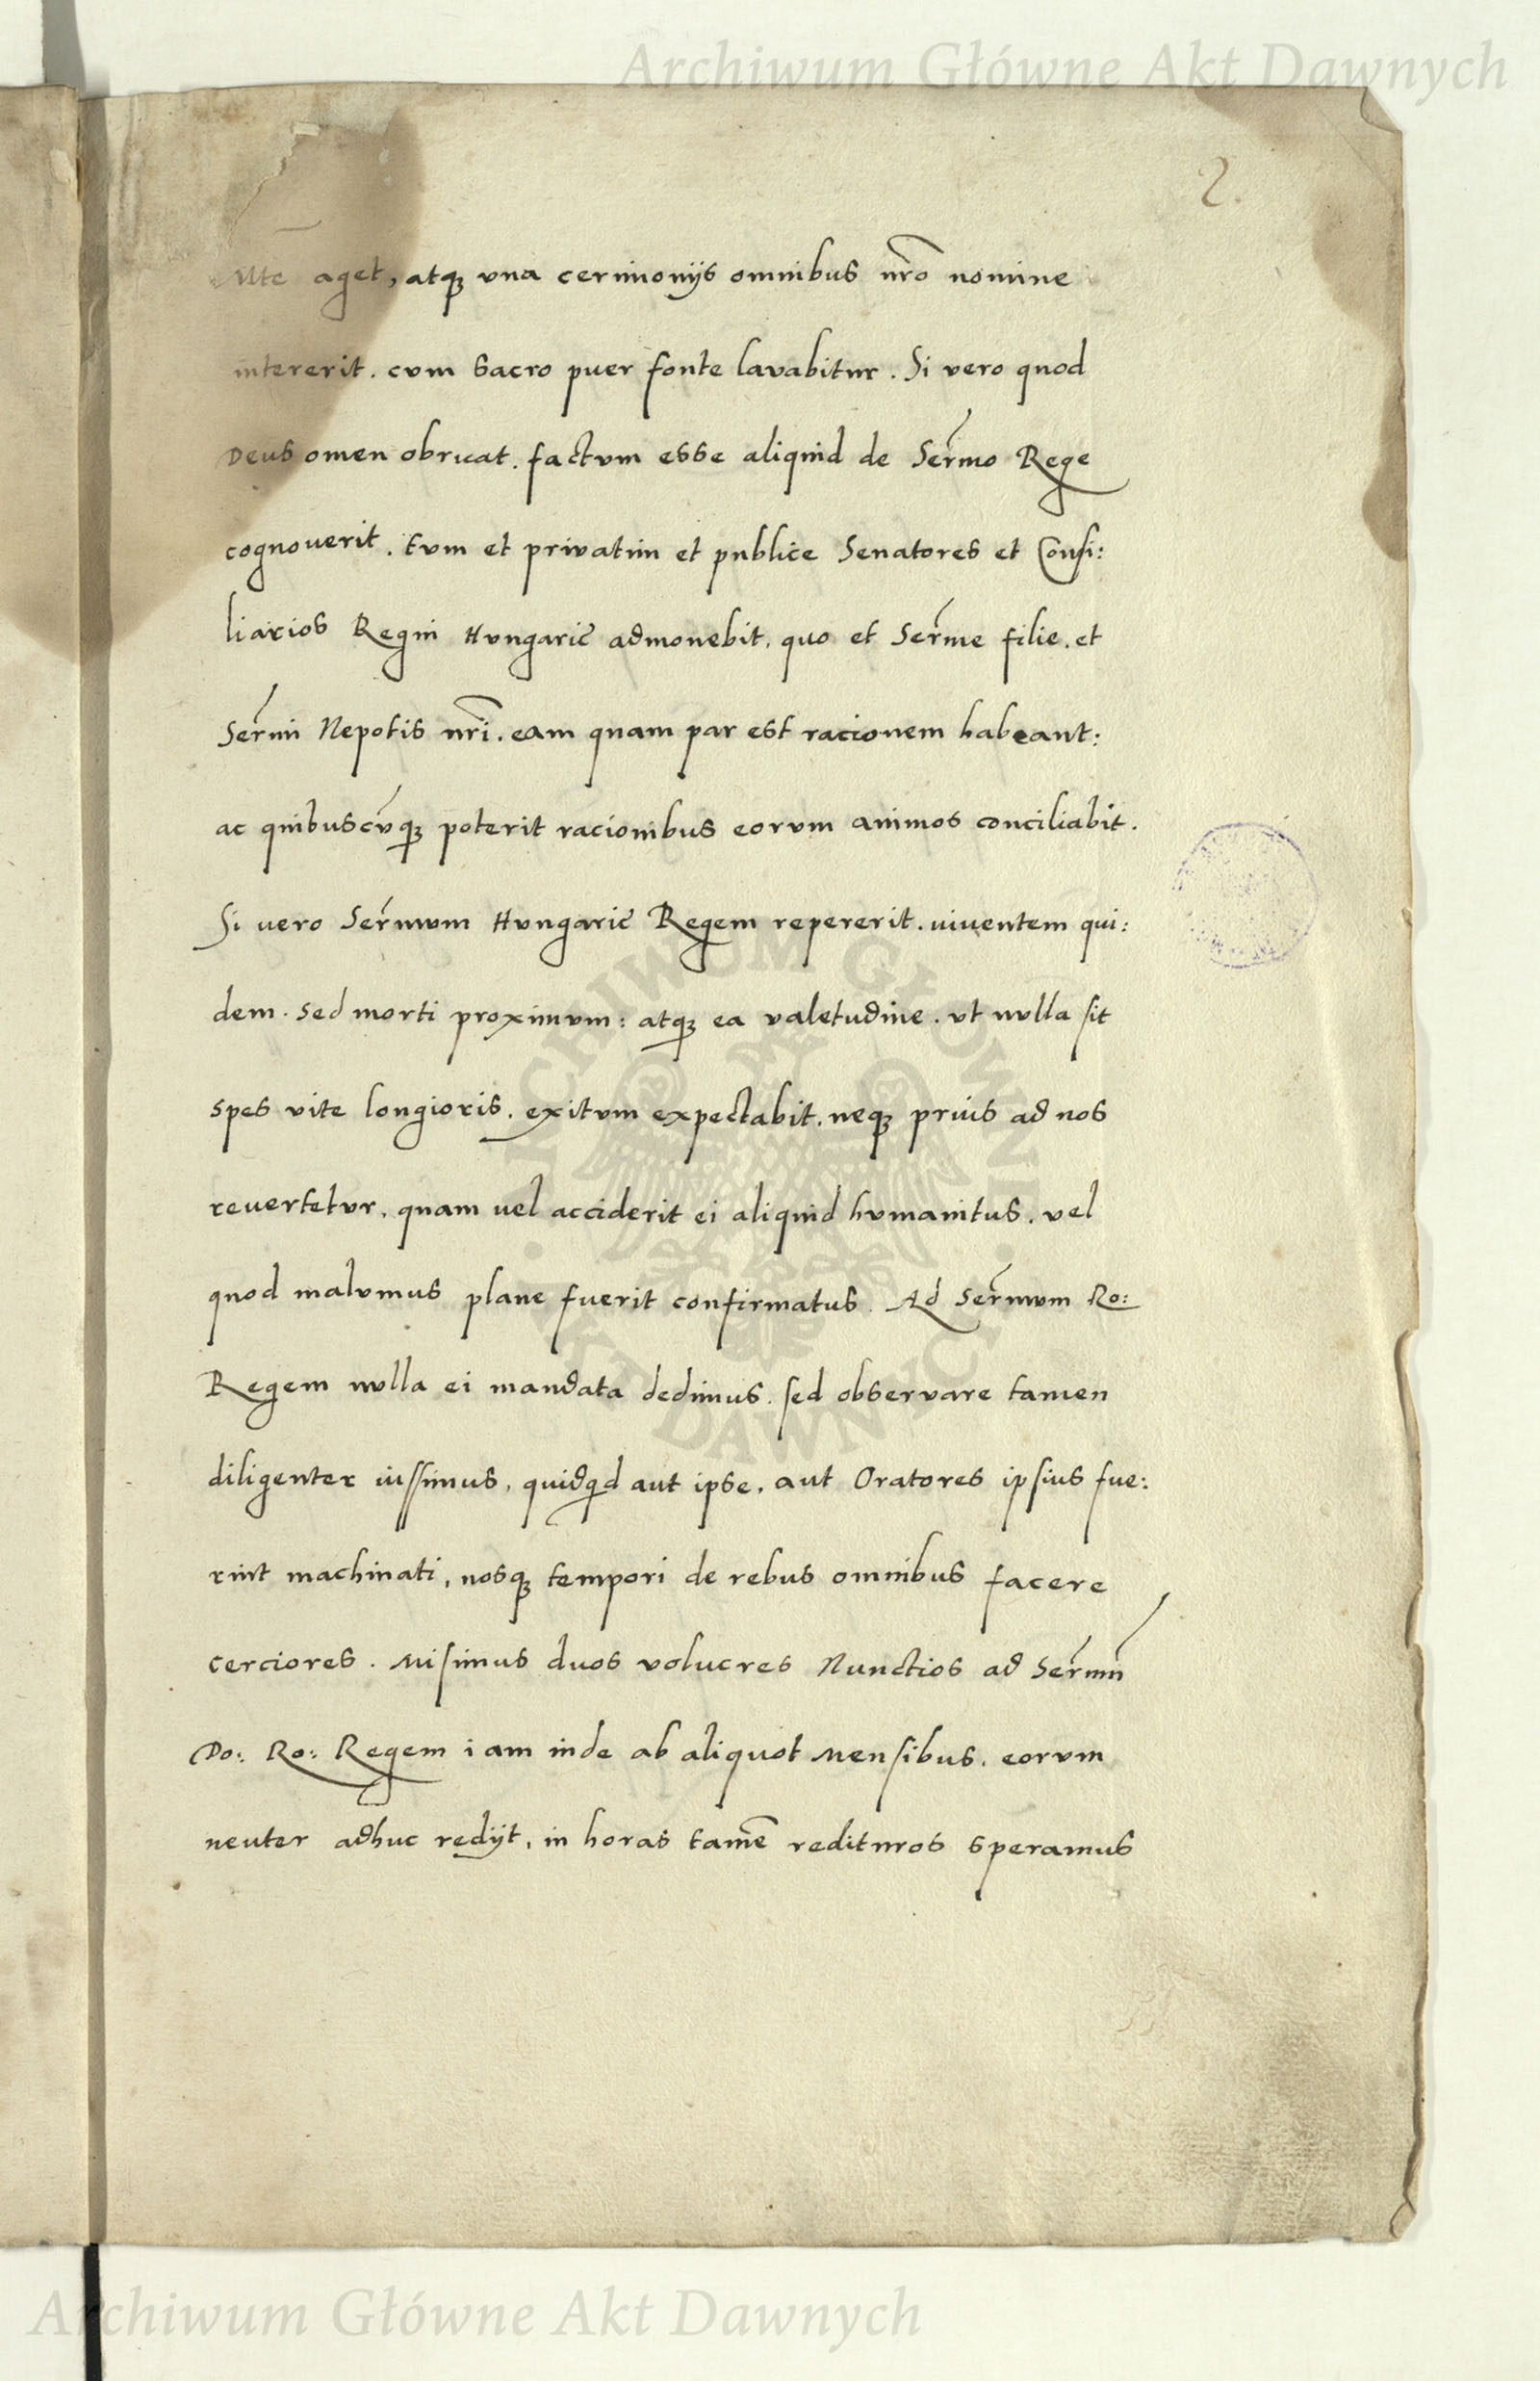 Archiwum Główne Akt Dawnych
2.
aget, atqꝫ vna cerimonijs omnibus nr̃o nomine
intererit. cvm Sacro puer fonte lavabitur. Si vero quod
Deus omen obruat. factvm esse aliquid de Ser̃mo Rege
cognouerit. tvm et privatim et publice Senatores et Consi:
liarios Regni Hvngarię admonebit. quo et Ser̃me filie. et
Ser̃mi Nepotis nr̃i. eam quam par est racionem habeant:
ac quibuscṽqꝫ poterit racionibus eorvm animos conciliabit.
Si vero Ser̃mvm Hvngarię Regem repererit. viventem qui:
dem. sed morti proximvm: atqꝫ ea valetudine. vt nvlla sit
spes vite longioris. exitvm expectabit. neqꝫ prius ad nos
revertetvr. quam vel acciderit ei aliquid hvmanitus. vel
quod malvmus plane fuerit confirmatus. Ad Ser̃mvm Ro:
Regem nvlla ei mandata dedimus. sed observare tamen
diligenter iussimus, quidqͥd aut ipse. aut Oratores ipsius fue:
rint machinati, nosqꝫ tempori de rebus omnibus facere
cerciores. Misimus duos volucres Nunctios ad Ser̃mũ
Do: Ro: Regem iam inde ab aliquot Mensibus. eorvm
neuter adhuc redijt, in horas tamẽ redituros speramus
ARCHIWUM GŁÓWNE AKT DAWNYCH
Archiwum Główne Akt Dawnych